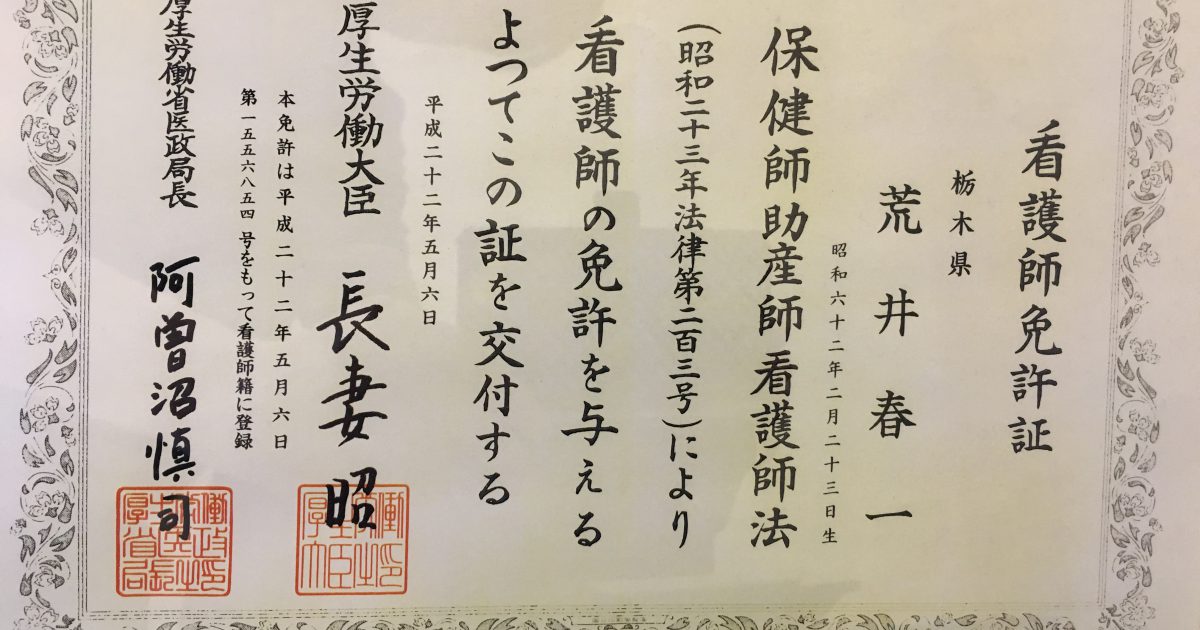 看護師免許証
栃木県
荒井春一
昭和六十二年二月二十三日生
保健師助産師看護師法
(昭和二十三年法律第二百三号)により
看護師の免許を与える
よつてこの証を交付する
平成二十二年五月六日
厚生労働大臣 長妻昭
本免許は平成二十二年五月六日
第一五五六八五四号をもって看護師籍に登録
厚生労働省医政局長 阿曽沼慎司